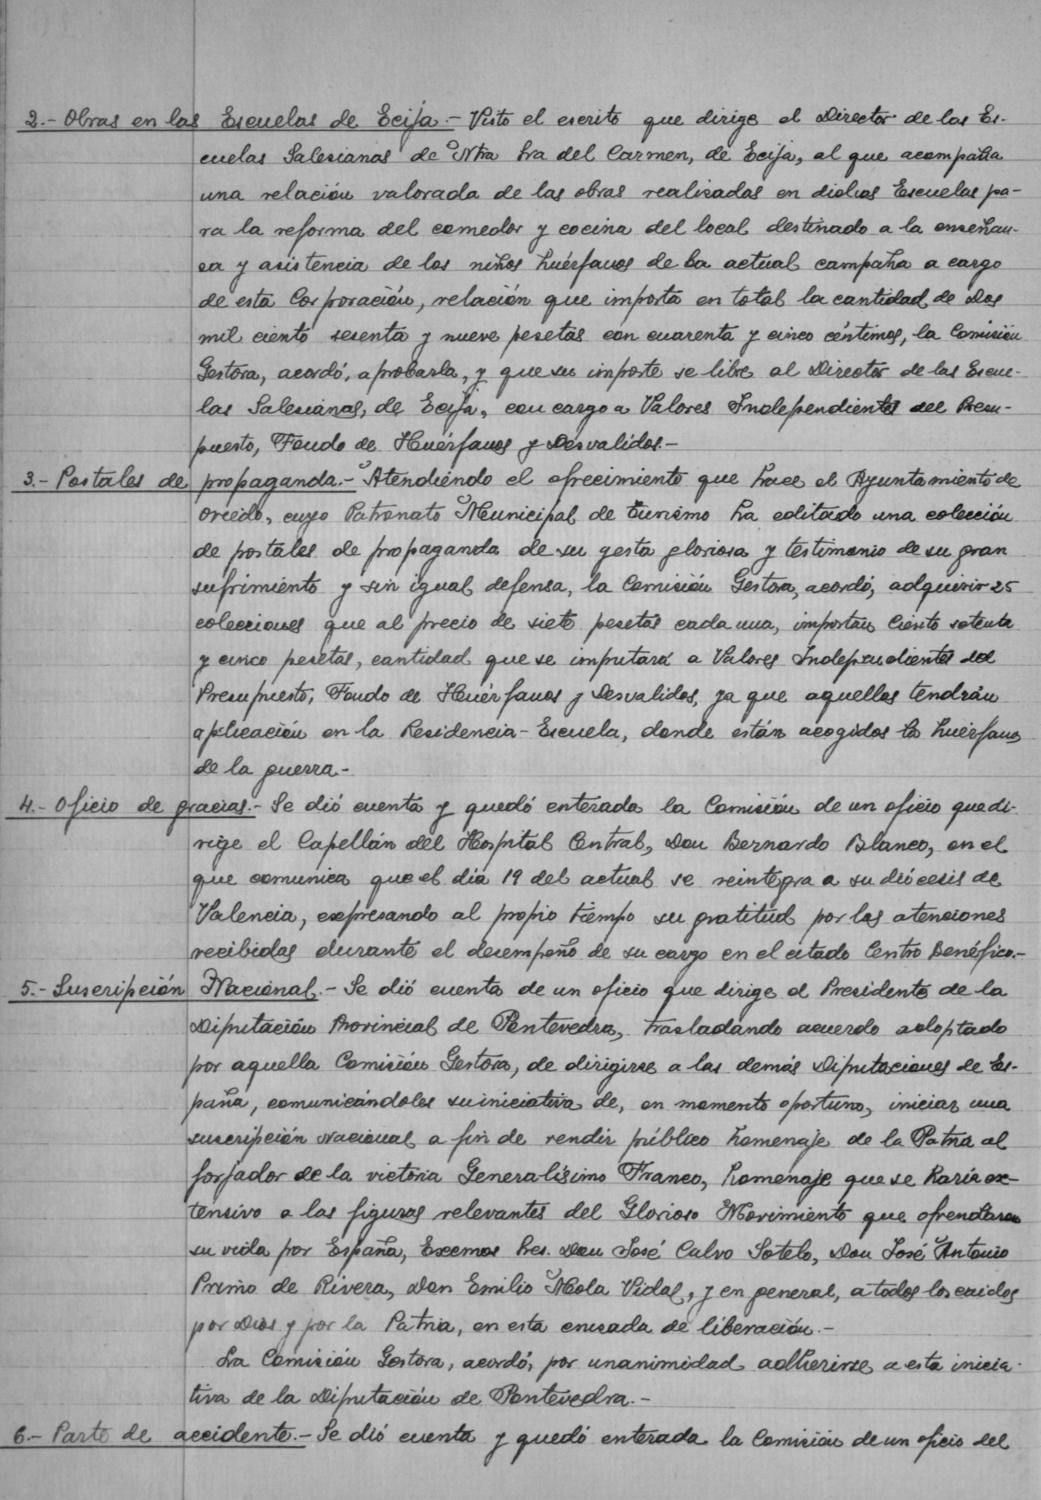 2.- Obras en las Escuelas de Ecija.- Visto el escrito que dirige el Director de las Es-
cuelas Salesianas de Ntra Sra del Carmen, de Ecija, al que acompaña
una relación valorada de las obras realizadas en dichas Escuelas pa-
ra la reforma del comedor y cocina del local destinado a la enseñan-
za y asistencia de los niños huérfanos de la actual campaña a cargo
de esta Corporación, relación que importa en total la cantidad de Dos
mil ciento sesenta y nueve pesetas con cuarenta y cinco céntimos, la Comisión
Gestora, acordó, aprobarla, y que su importe se libre al Director de las Escue-
las Salesianas, de Ecija, con cargo a Valores Independientes del Presu-
puesto, Fondo de Huérfanos y Desvalidos.-
3.- Postales de propaganda.- Atendiendo el ofrecimiento que hace el Ayuntamiento de
Oviedo, cuyo Patronato Municipal de turismo ha editado una colección
de postales de propaganda de su gesta gloriosa y testimonio de su gran
sufrimiento y sin igual defensa, la Comisión Gestora, acordó, adquirir 25
colecciones que al precio de siete pesetas cada una, importan Ciento setenta
y cinco pesetas, cantidad que se imputará a Valores Independientes del
Presupuesto, Fondo de Huérfanos y Desvalidos, ya que aquellas tendrán
aplicación en la Residencia-Escuela, donde están acogidos los huérfanos
de la guerra.-
4.- Oficio de gracias.- Se dió cuenta y quedó enterada la Comisión de un oficio que di-
rige el Capellán del Hospital Central, Don Bernardo Blanco, en el
que comunica que el día 19 del actual se reintegra a su diócesis de
Valencia, expresando al propio tiempo su gratitud por las atenciones
recibidas durante el desempeño de su cargo en el citado Centro Benéfico.-
5.- Suscripción Nacional.- Se dió cuenta de un oficio que dirige el Presidente de la
Diputación Provincial de Pontevedra, trasladando acuerdo adoptado
por aquella Comisión Gestora, de dirigirse a las demás Diputaciones de Es-
paña, comunicándoles su iniciativa de, en momento oportuno, iniciar una
suscripción nacional a fin de rendir público homenaje de la Patria al
forjador de la victoria Generalísimo Franco, homenaje que se haría ex-
tensivo a las figuras relevantes del Glorioso Movimiento que ofrendaron
su vida por España, Excmos Sres. Don José Calvo Sotelo, Don José Antonio
Primo de Rivera, Don Emilio Mola Vidal, y en general, a todos los caidos
por Dios y por la Patria, en esta cruzada de liberación.-
La Comisión Gestora, acordó, por unanimidad adherirse a esta inicia-
tiva de la Diputación de Pontevedra.-
6.- Parte de accidente.- Se dió cuenta y quedó enterada la Comisión de un oficio del